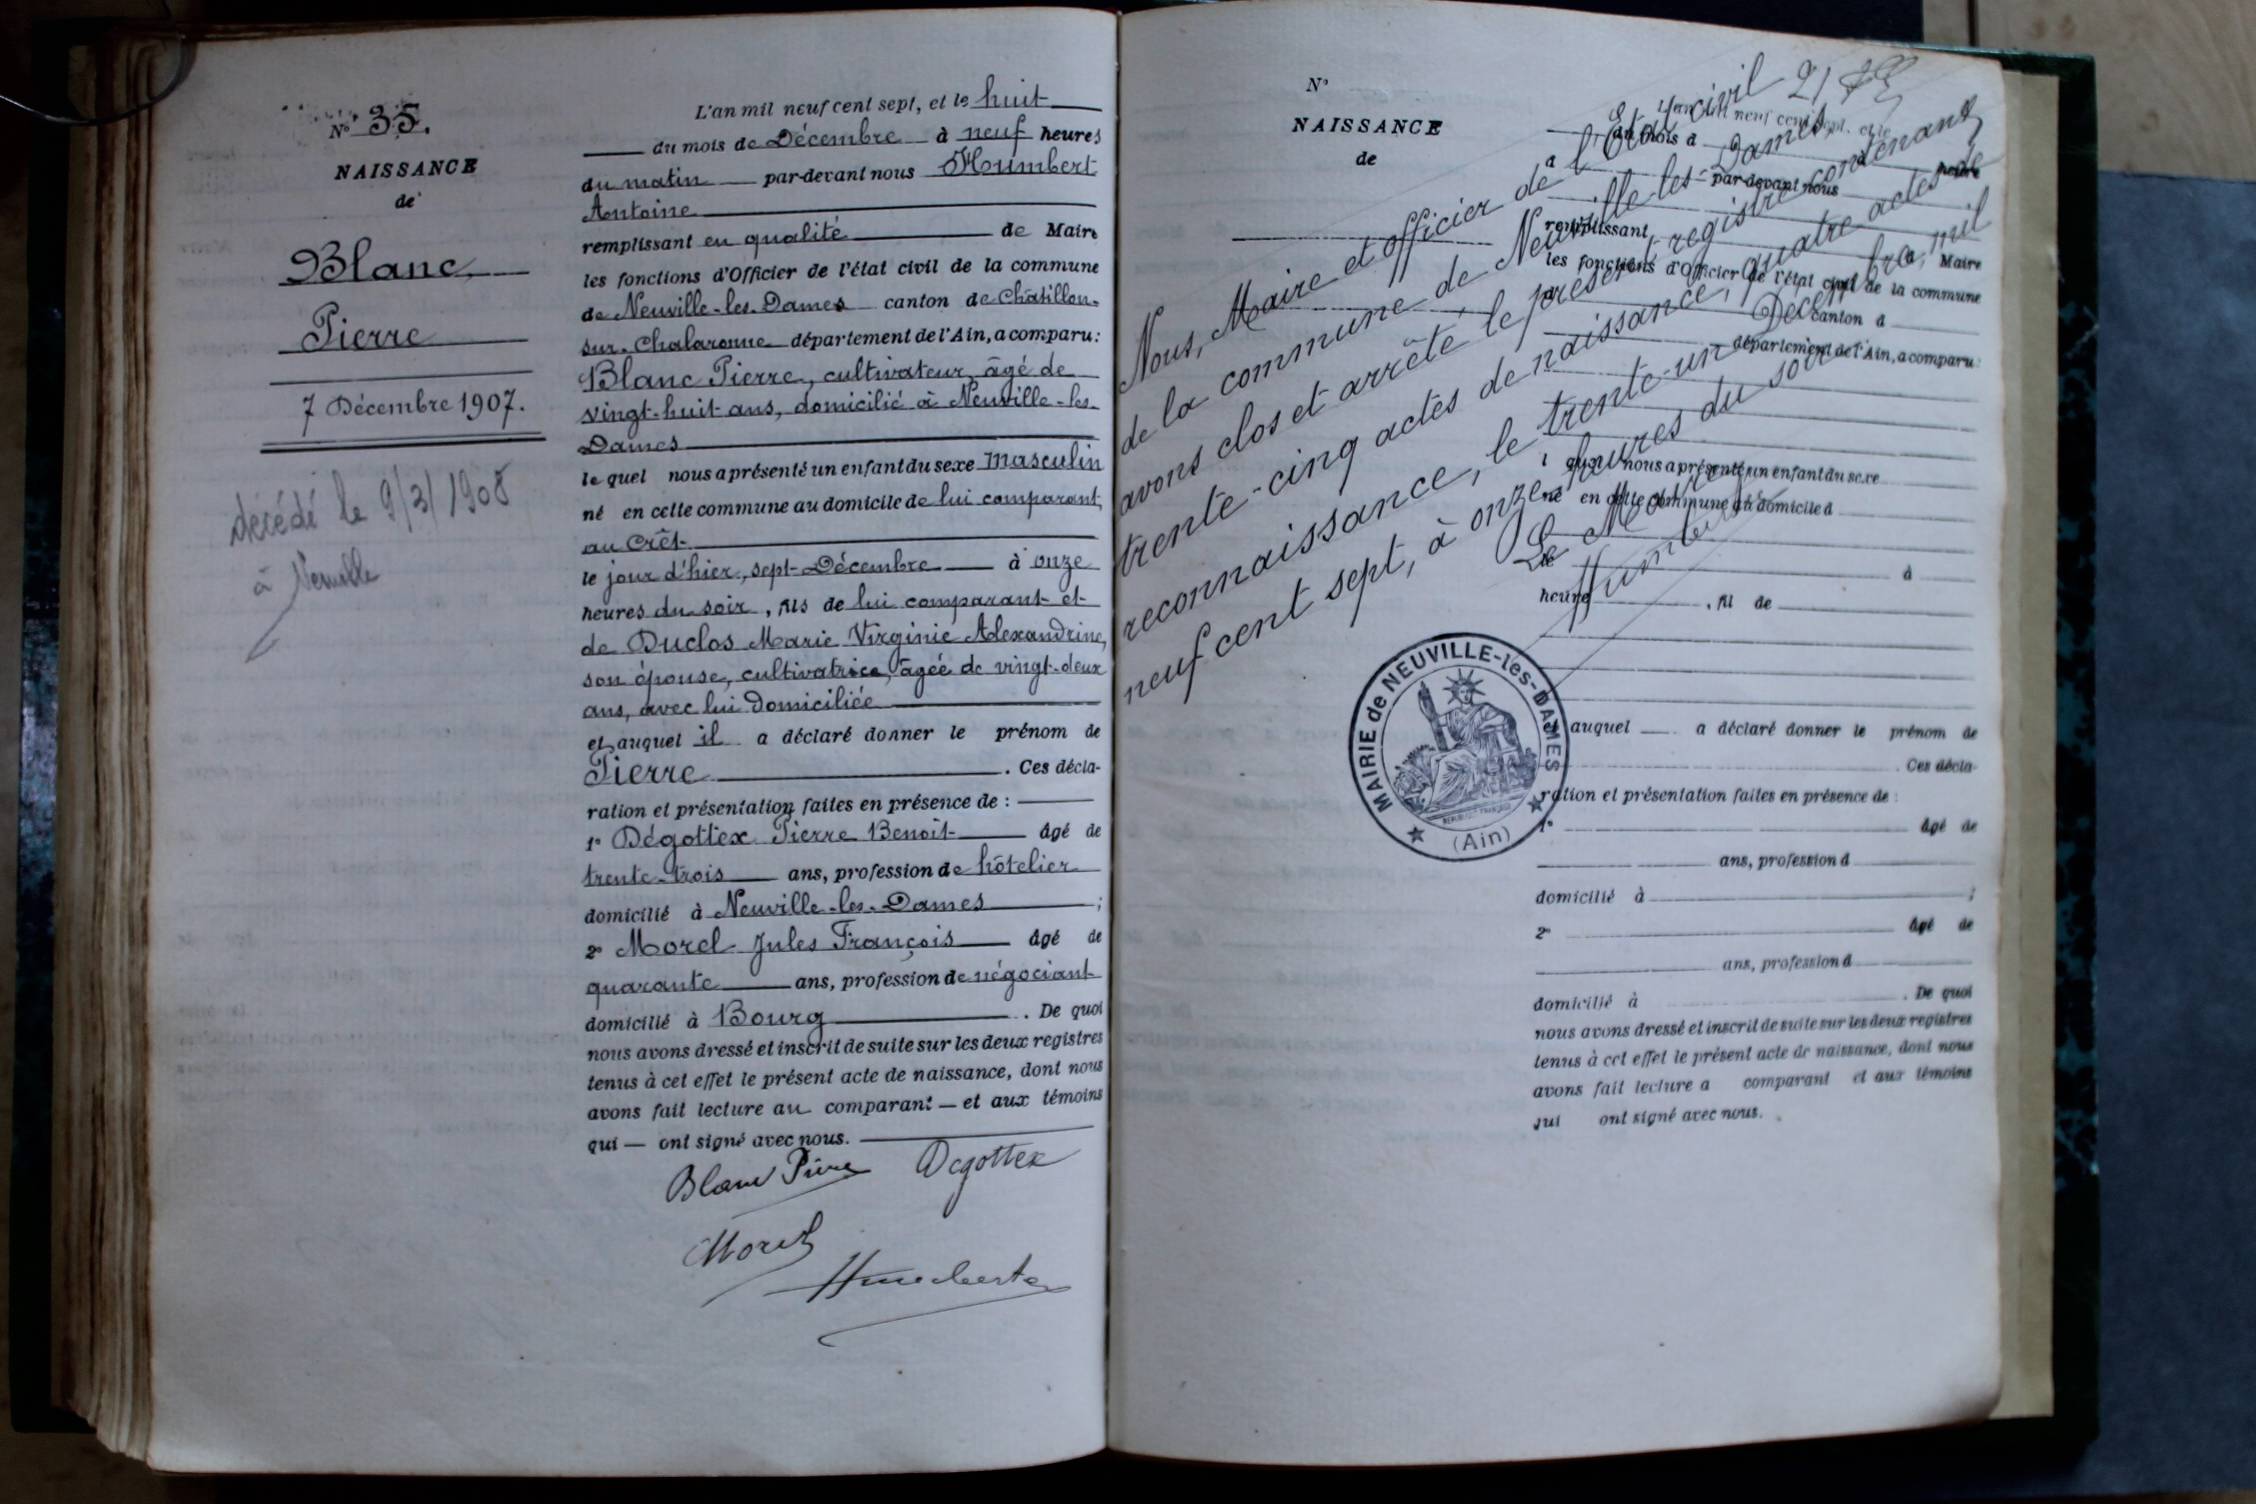 N° 35.
NAISSANCE
de
Blanc,
Pierre
7 Décembre 1907.
décédé le 9/3/1908
à Neuville
L'an mil neuf cent sept, et le huit
du mois de Décembre à neuf heures
du matin par-devant nous Humbert
Antoine
remplissant en qualité de Maire
les fonctions d'Officier de l'état civil de la commune
de Neuville-les-Dames canton de Châtillon-
sur-Chalaronne département de l'Ain, a comparu:
Blanc Pierre, cultivateur, âgé de
vingt-huit ans, domicilié à Neuville-les-
Dames
le quel nous a présenté un enfant du sexe masculin
né en cette commune au domicile de lui comparant,
au Crêt
le jour d'hier, sept Décembre à onze
heures du soir, fils de lui comparant et
de Duclos Marie Virginie Alexandrine,
son épouse, cultivatrice, âgée de vingt-deux
ans, avec lui domiciliée
et auquel il a déclaré donner le prénom de
Pierre. Ces décla-
ration et présentation faites en présence de :
1° Dégottex Pierre Benoit âgé de
trente-trois ans, profession de hôtelier
domicilié à Neuville-les-Dames ;
2° Morel Jules François âgé de
quarante ans, profession de négociant
domicilié à Bourg. De quoi
nous avons dressé et inscrit de suite sur les deux registres
tenus à cet effet le présent acte de naissance, dont nous
avons fait lecture au comparant — et aux témoins
qui — ont signé avec nous.
Blanc Pierre Dégottex
Morel
Humbert
N°
NAISSANCE
de
Nous, Maire et officier de l'Etat civil
de la commune de Neuville-les-Dames,
avons clos et arrêté le présent registre contenant
trente-cinq actes de naissance, quatre actes de
reconnaissance, le trente-un Décembre, mil
neuf cent sept, à onze heures du soir
Le Maire
Humbert
L'an mil neuf cent sept, et le
du mois d à heure
par-devant nous
remplissant d Maire
les fonctions d'Officier de l'état civil de la commune
d canton d
département de l'Ain, a comparu:
l quel nous a présenté un enfant du sexe
né en cette commune au domicile d
le à
heure , fil de
MAIRIE de NEUVILLE-les-DAMES
RÉPUBLIQUE FRANÇAISE
(Ain)
et auquel a déclaré donner le prénom de
. Ces décla-
ration et présentation faites en présence de :
1° âgé de
ans, profession d
domicilié à ;
2° âgé de
ans, profession d
domicilié à . De quoi
nous avons dressé et inscrit de suite sur les deux registres
tenus à cet effet le présent acte de naissance, dont nous
avons fait lecture a comparant et aux témoins
qui ont signé avec nous.